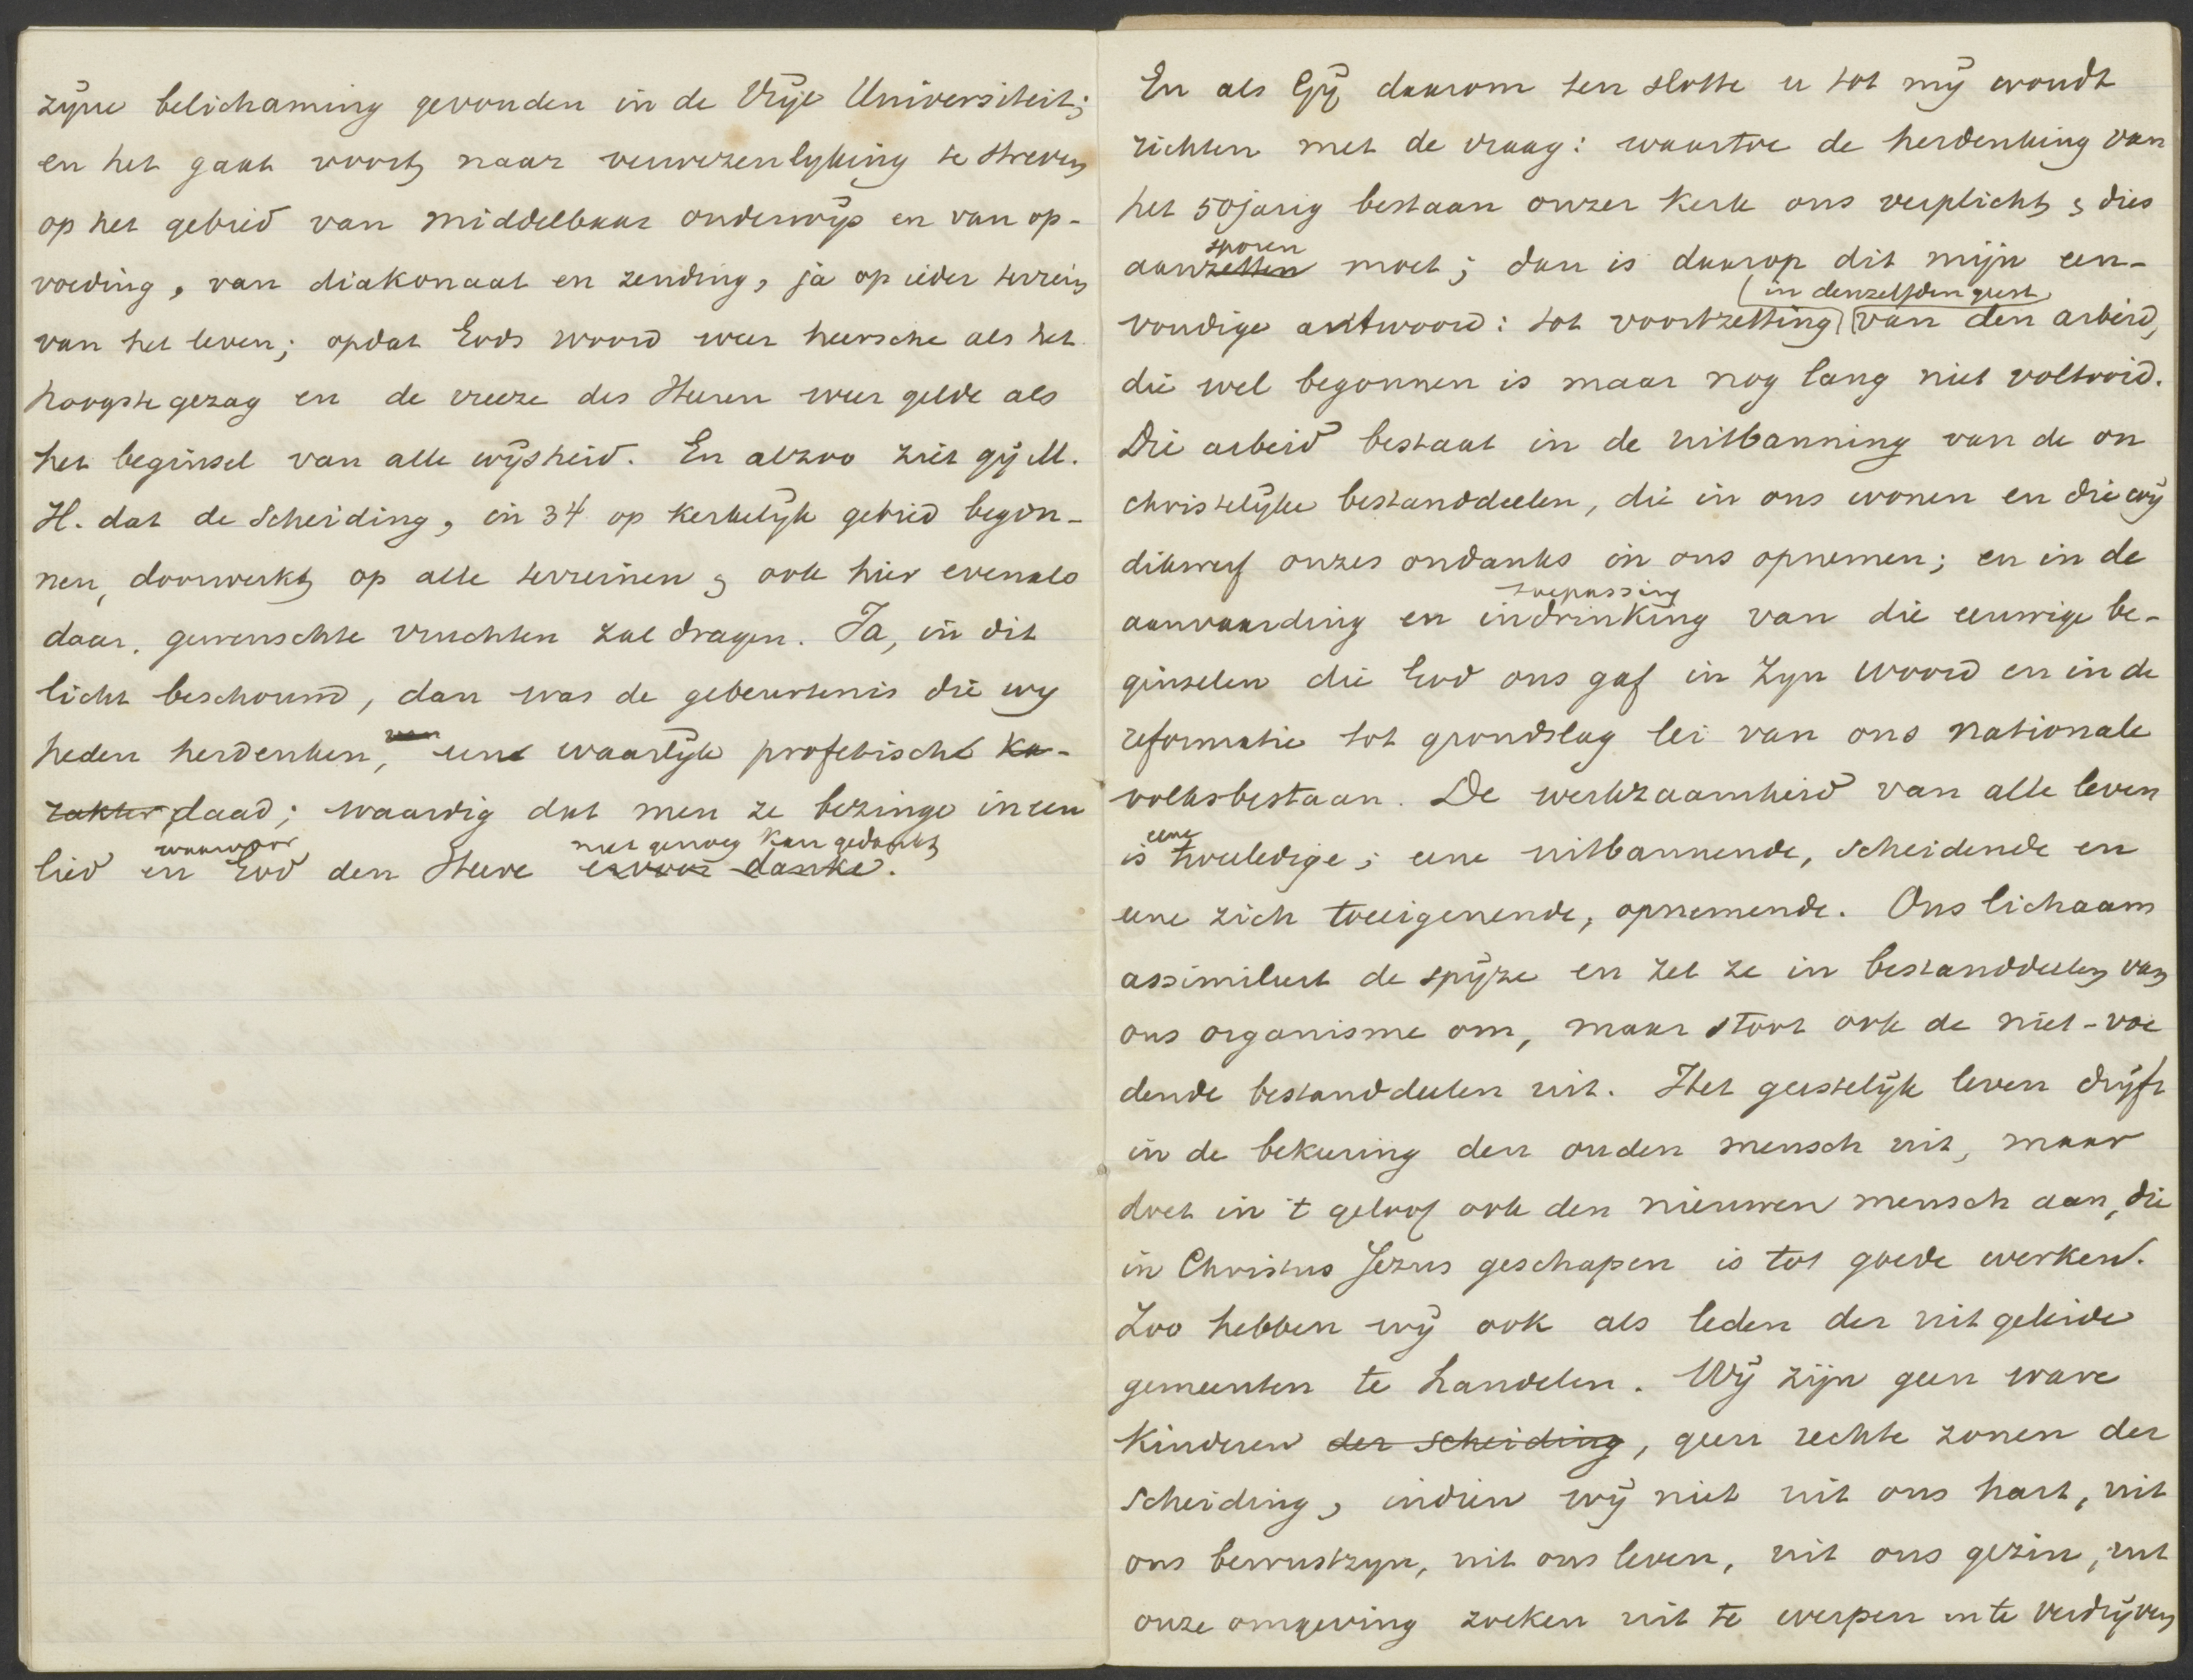 zÿne belichaming gevonden in de Vrÿe Universiteit;
en het gaat voort, naar verwezenlyking te streven
op het gebied van middelbaar onderwÿs en van op-
voeding, van diakonaat en zending, ja op ieder terrein
van het leven; opdat Gods woord weer heersche als het
hoogste gezag en de vreeze des Heeren weer gelde als
het beginsel van alle wÿsheid. En alzoo ziet gÿ M.
H. dat de Scheiding, in 34 op kerkelÿk gebied begon-
nen, doorwerkt, op alle terreinen, ook hier evenals
daar, gewenschte vruchten zal dragen. Ja, in dit
licht beschouwd, dan was de gebeurtenis die wy
heden herdenken, een waarlÿk profetische ka-
rakter, daad; waardig dat men ze bezinge in een
waarvoor niet genoeg kan gedankt
lied en God den Heere ervoor danke.
En als Gÿ daarom ten slotte u tot mÿ woudt
richten met de vraag: waartoe de herdenking van
het 50jarig bestaan onzer Kerk ons verplicht, dies
sporen
aanzetten moet; dan is daarop dit mijn een-
in denzelfden geest
voudige antwoord: tot voortzetting van den arbeid,
die wel begonnen is maar nog lang niet voltooid.
Die arbeid bestaat in de uitbanning van de on
christelÿke bestanddeelen, die in ons wonen en die wÿ
dikwerf onzes ondanks in ons opnemen; en in de
toepassing
aanvaarding en indrinking van die eeuwige be-
ginselen die God ons gaf in Zyn Woord en in de
reformatie tot grondslag lei van ons nationale
volksbestaan. De werkzaamheid van alle leven
eene
is tweeledige; eene uitbannende, scheidende en
eene zich toeeigenende, opnemende. Ons lichaam
assimileert de spÿze en zet ze in bestanddeelen van
ons organisme om, maar stoot ook de niet-voe
dende bestanddeelen uit. Het geestelÿk leven drÿft
in de bekeering den ouden mensch uit, maar
doet in 't geloof ook den nieuwen mensch aan, die
in Christus Jezus geschapen is tot goede werken.
Zoo hebben wÿ ook als leden der uitgeleide
gemeenten te handelen. Wÿ zijn geen ware
Kinderen der Scheiding, geen rechte zonen der
Scheiding, indien wÿ niet uit ons hart, uit
ons bewustzyn, uit ons leven, uit ons gezin, uit
onze omgeving zoeken uit te werpen en te verdrÿven